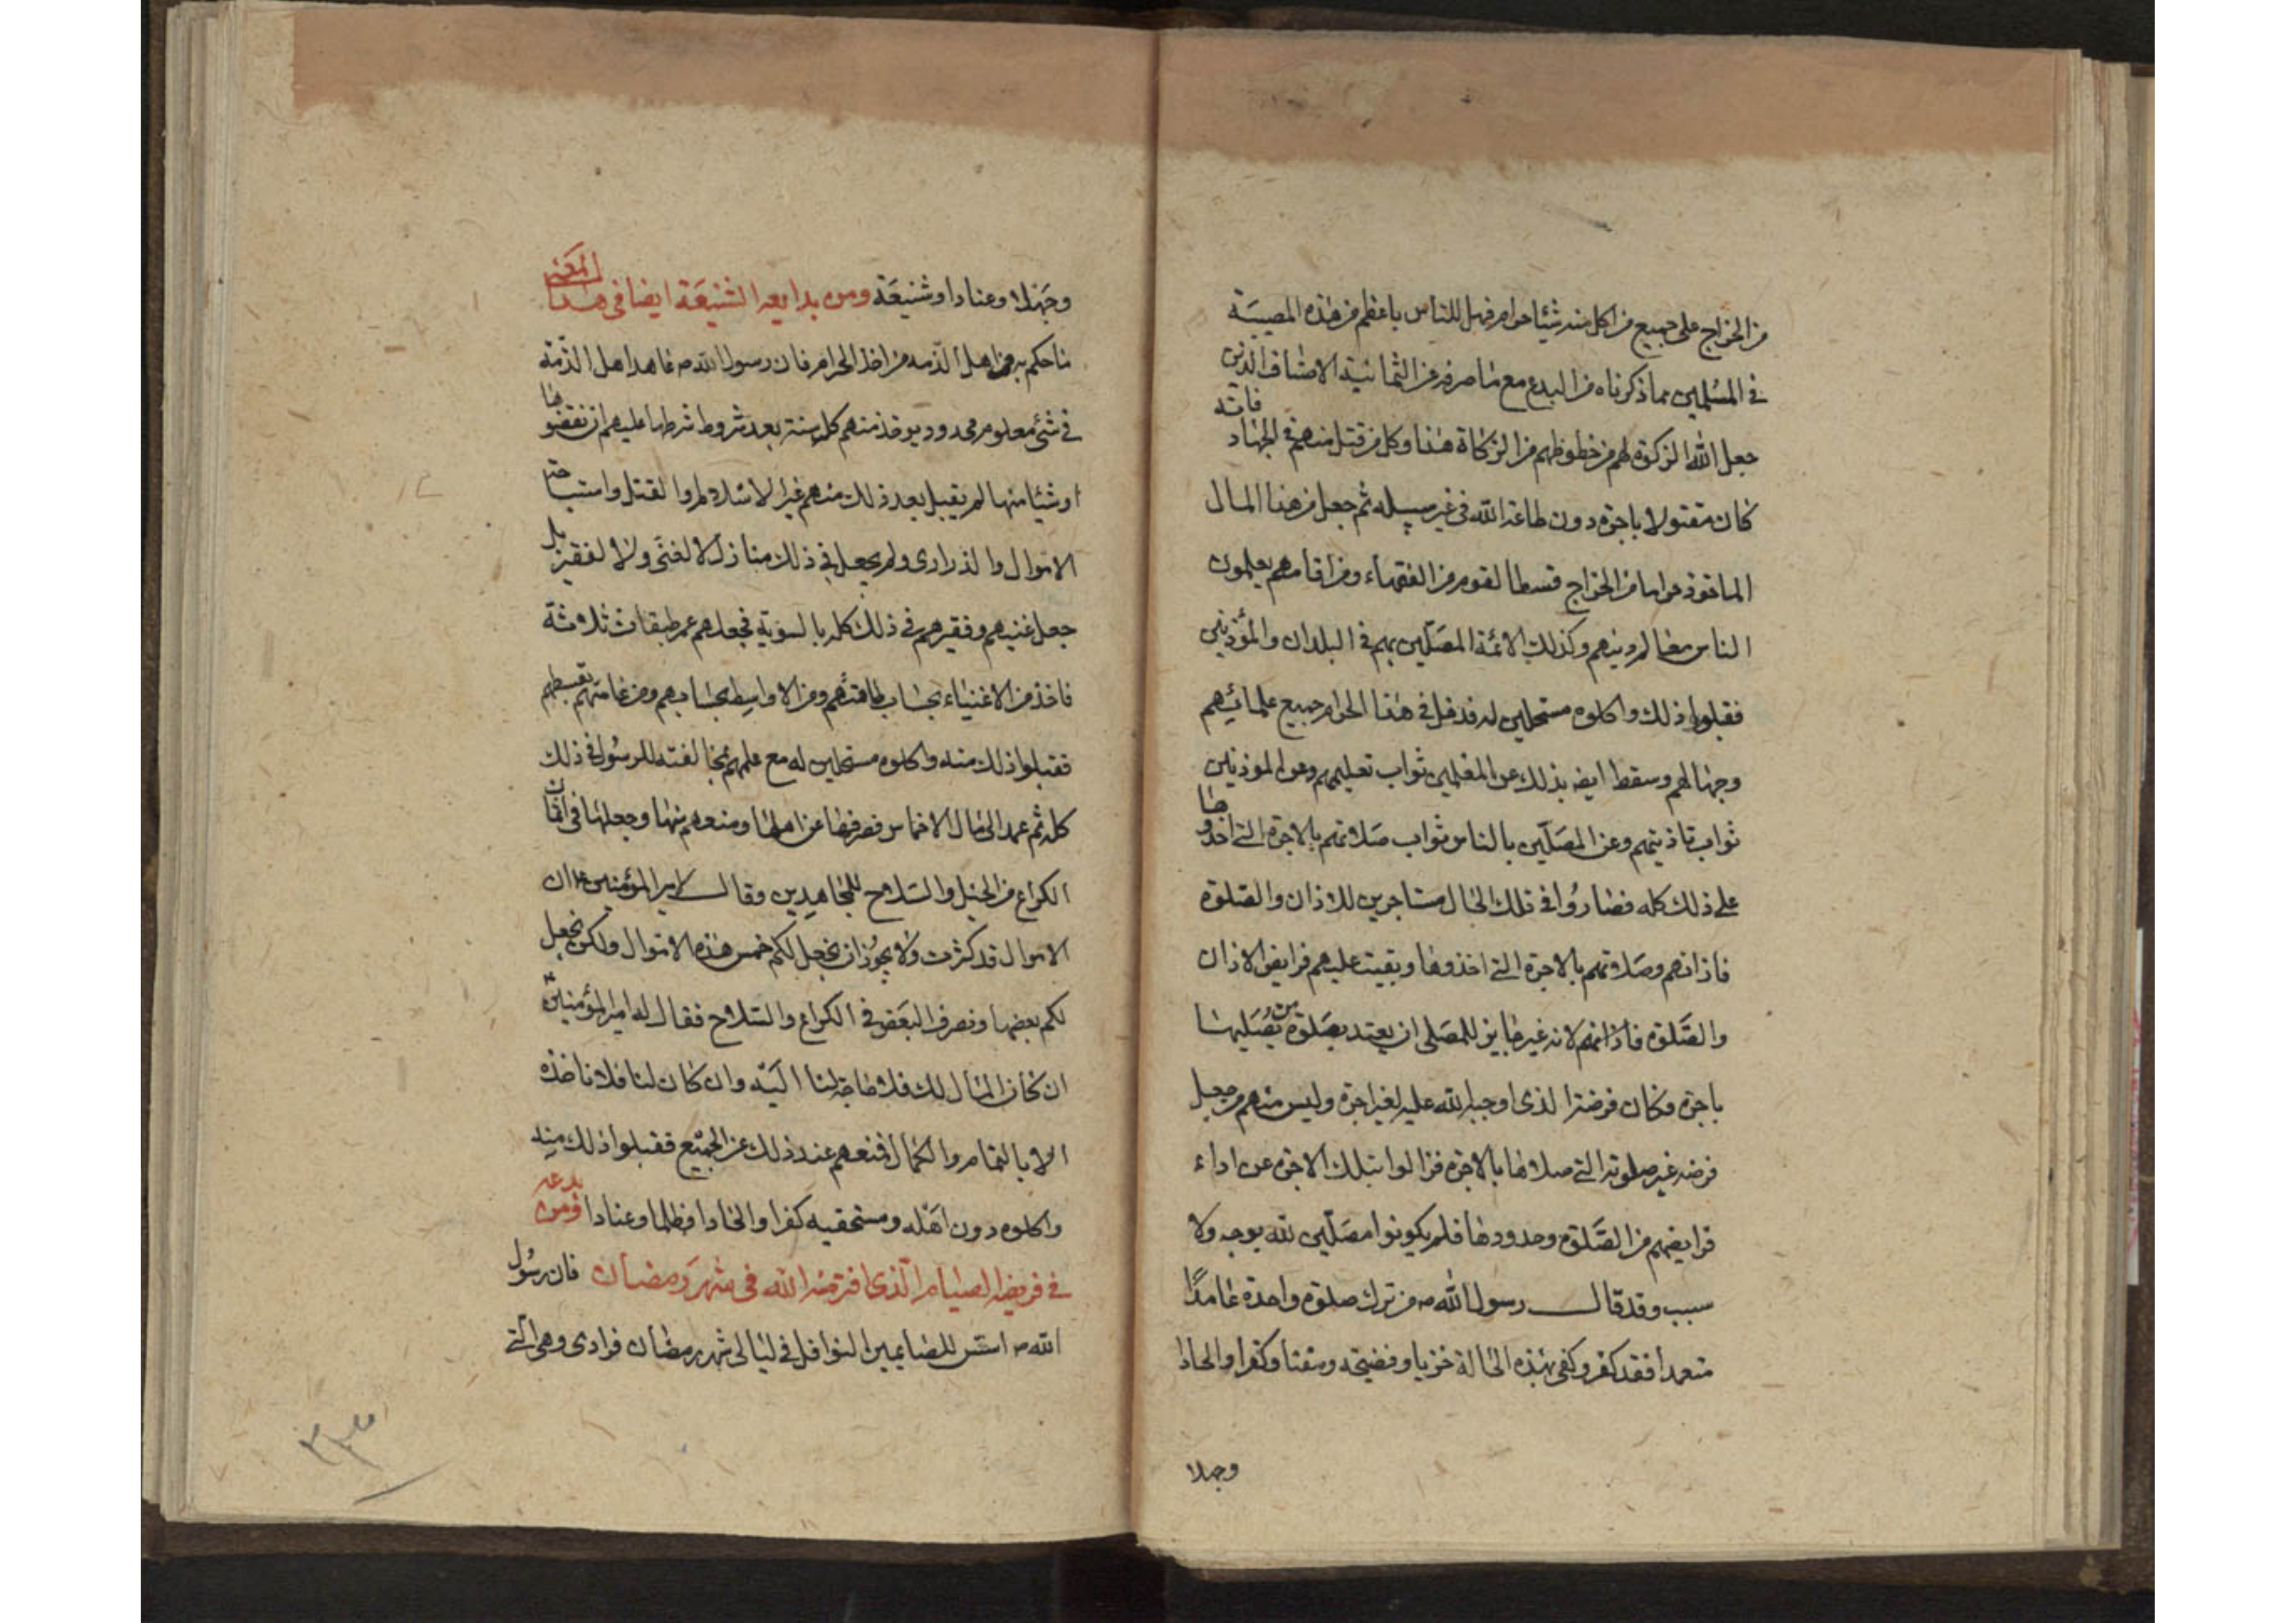 من الخراج على جميع من اكل منه شيئا حرام فهل للناس باعظم من هذه المصيبة
في المسلمين مما ذكرناه من البدع مع ما صرفه عن الثمانية الاصناف الذين
جعل الله الزكوة لهم من حظوظهم من الزكاة هذا وكل من قتل منهم في الجهاد فانه
كان مقتولا باجرة دون طاعة الله في غير سبيله ثم جعل من هذا المال
الماخوذ حراما من الخراج قسطا لقوم من الفقهاء ومن اقامهم يعلمون
الناس معالم دينهم وكذلك الائمة المصلين بهم في البلدان والمؤذنين
فقبلوا ذلك واكلوه مستحلين له فدخل في هذا الحرام جميع علمائهم
وجهالهم وسقط ايضه بذلك عن المعلمين ثواب تعليمهم وعن الموذنين
ثواب تاذينهم وعن المصلين بالناس ثواب صلاتهم بالاجرة التي اخذوها
على ذلك كله فصاروا في تلك الحال مستاجرين للاذان والصلوة
فاذانهم وصلوتهم بالاجرة التي اخذوها وبقيت عليهم فرايض الاذان
والصلوة فاذانهم لانه غير جايز للمصلى ان يعتد بصلوة من يصليها
باجرة وكان فرضه الذى اوجبه الله عليه لغير اجرة وليس منهم من جعل
فرضه غير صلوته التي صلاها بالاجرة فزالوا بتلك الاجرة عن اداء
فرايضهم من الصلوة وحدودها فلم يكونوا مصلين لله بوجه ولا
سبب وقد قال رسول الله ص من ترك صلوة واحدة عامدًا
متعمدا فقد كفر وكفى بهذه الحالة خزيا وفضيحة ومقتا وكفرا والحادا
وجهلا
وجهلا وعنادا وشنيعة ومن بدايعه الشنيعة ايضا في هذا المعنى
ما حكم به من اهل الذمة من اخذ الحرام فان رسول الله ص عاهد اهل الذمة
في شئ معلوم محدود يوخذ منهم كل سنة بعد شروط شرطها عليهم ان نقضوها
او شيئا منها لم يقبل بعد ذلك منهم غير الاسلام او القتل واستباحة
الاموال والذرارى ولم يجعل في ذلك منازل لا لغنى ولا لفقير بل
جعل غنيهم وفقيرهم في ذلك كله بالسوية فجعلهم عمر طبقات ثلاثة
فاخذ من الاغنياء بحساب طاقتهم ومن الاواسط بحسابهم ومن عامتهم بقسطهم
فقبلوا ذلك منه واكلوه مستحلين له مع علمهم بمخالفته للرسول في ذلك
كله ثم عمد الى مال الاخماس فصرفها عن اهلها ومنعوهم منها وجعلها في اثمان
الكراع من الخيل والسلاح للمجاهدين وقال لامير المؤمنين ع ان
الاموال قد كثرت ولا يجوز ان نجعل لكم خمس هذه الاموال ولكن نجعل
لكم بعضها ونصرف البعض في الكراع والسلاح فقال له امير المؤمنين ع
ان كان المال لك فلا حاجة لنا اليه وان كان لنا فلا ناخذه
الا بالتمام والكمال فمنعهم عند ذلك عن الجميع فقبلوا ذلك منه
واكلوه دون اهله ومستحقيه كفرا والحادا وظلما وعنادا ومن بدعه
في فريضة الصيام الذى افترضه الله في شهر رمضان فان رسول
الله ص استن للصايمين النوافل في ليالى شهر رمضان فرادى وهى التي